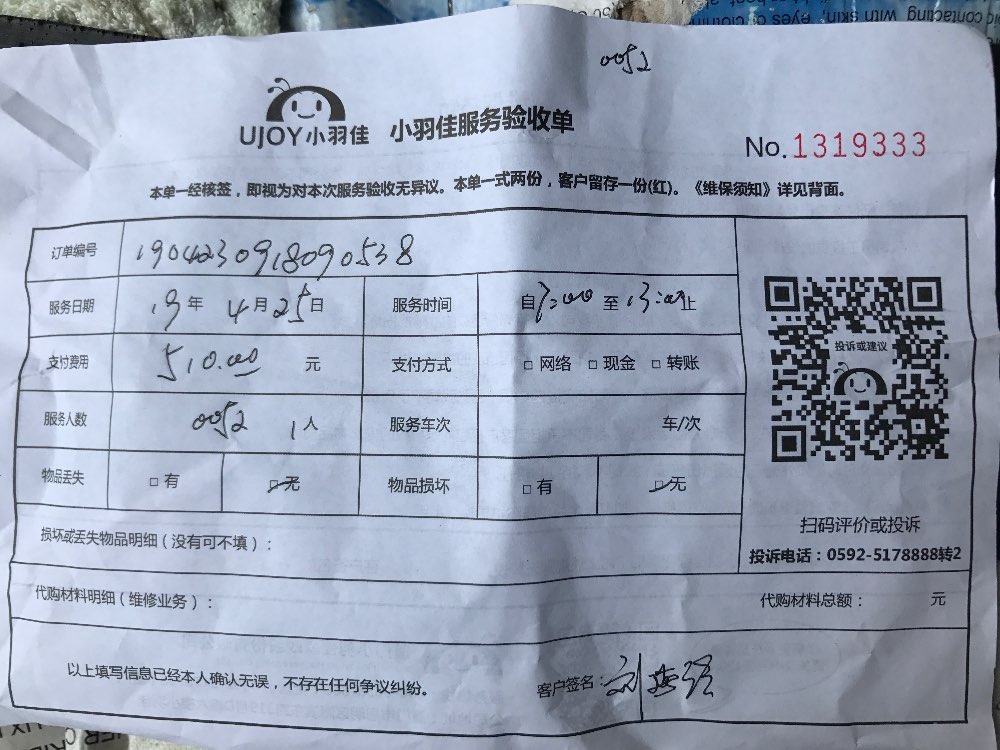 0052
UJOY小羽佳 小羽佳服务验收单
No.1319333
本单一经核签，即视为对本次服务验收无异议。本单一式两份，客户留存一份(红)。《维保须知》详见背面。
订单编号 1904230918090538
服务日期 19年 4月25日 服务时间 自9:00 至13:00止
支付费用 510.00 元 支付方式 □ 网络 □ 现金 □ 转账
服务人数 0052 1人 服务车次 车/次
物品丢失 □ 有 □ 无 物品损坏 □ 有 □ 无
投诉或建议
扫码评价或投诉
投诉电话：0592-5178888转2
损坏或丢失物品明细（没有可不填）：
代购材料明细（维修业务）： 代购材料总额： 元
以上填写信息已经本人确认无误，不存在任何争议纠纷。 客户签名：刘